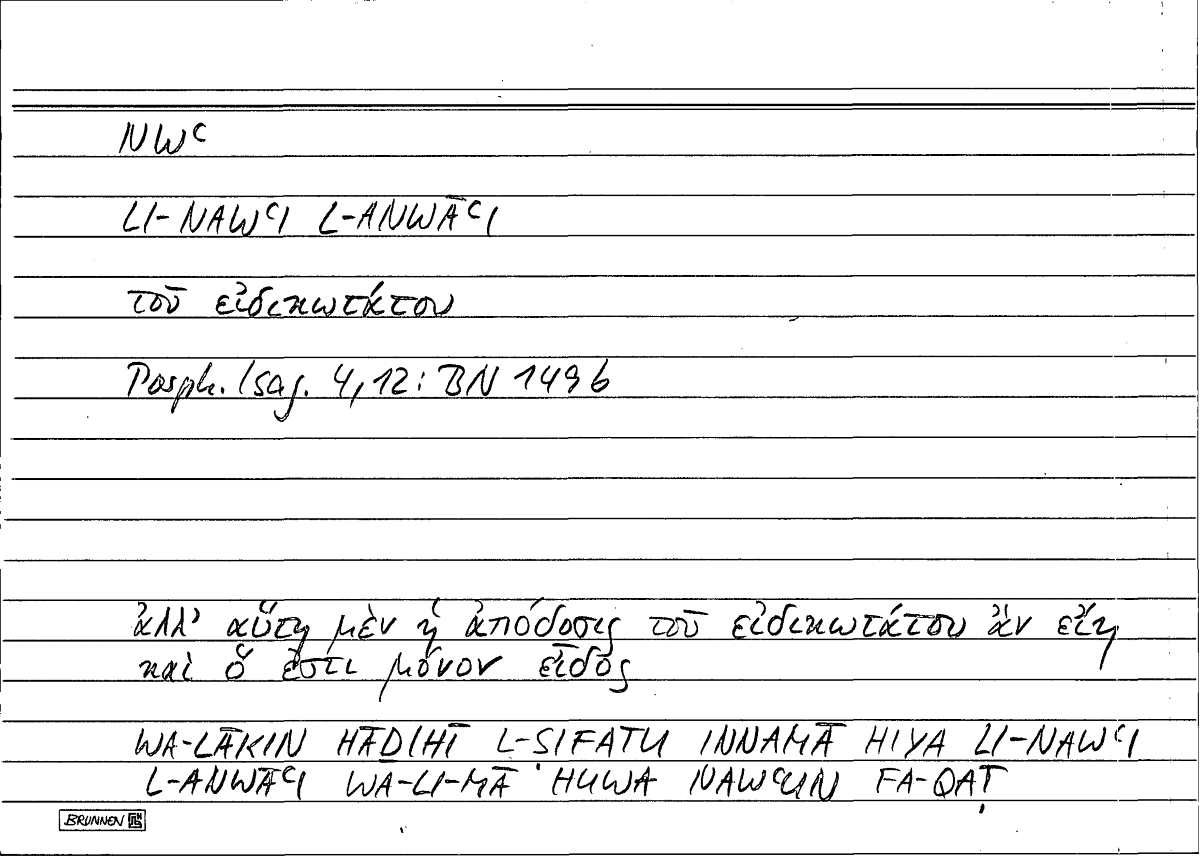 NWʿ
LI-NAWʿI L-ANWĀʿI
τοῦ εἰδικωτάτου
Porph. Isag. 4,12: BN 149b
ἀλλ' αὕτη μὲν ἡ ἀπόδοσις τοῦ εἰδικωτάτου ἂν εἴη
καὶ ὅ ἐστι μόνον εἶδος
WA-LĀKIN HĀḎIHĪ L-ṢIFATU INNAMĀ HIYA LI-NAWʿI
L-ANWĀʿI WA-LI-MĀ HUWA NAWʿUN FA-QAṬ
BRUNNEN